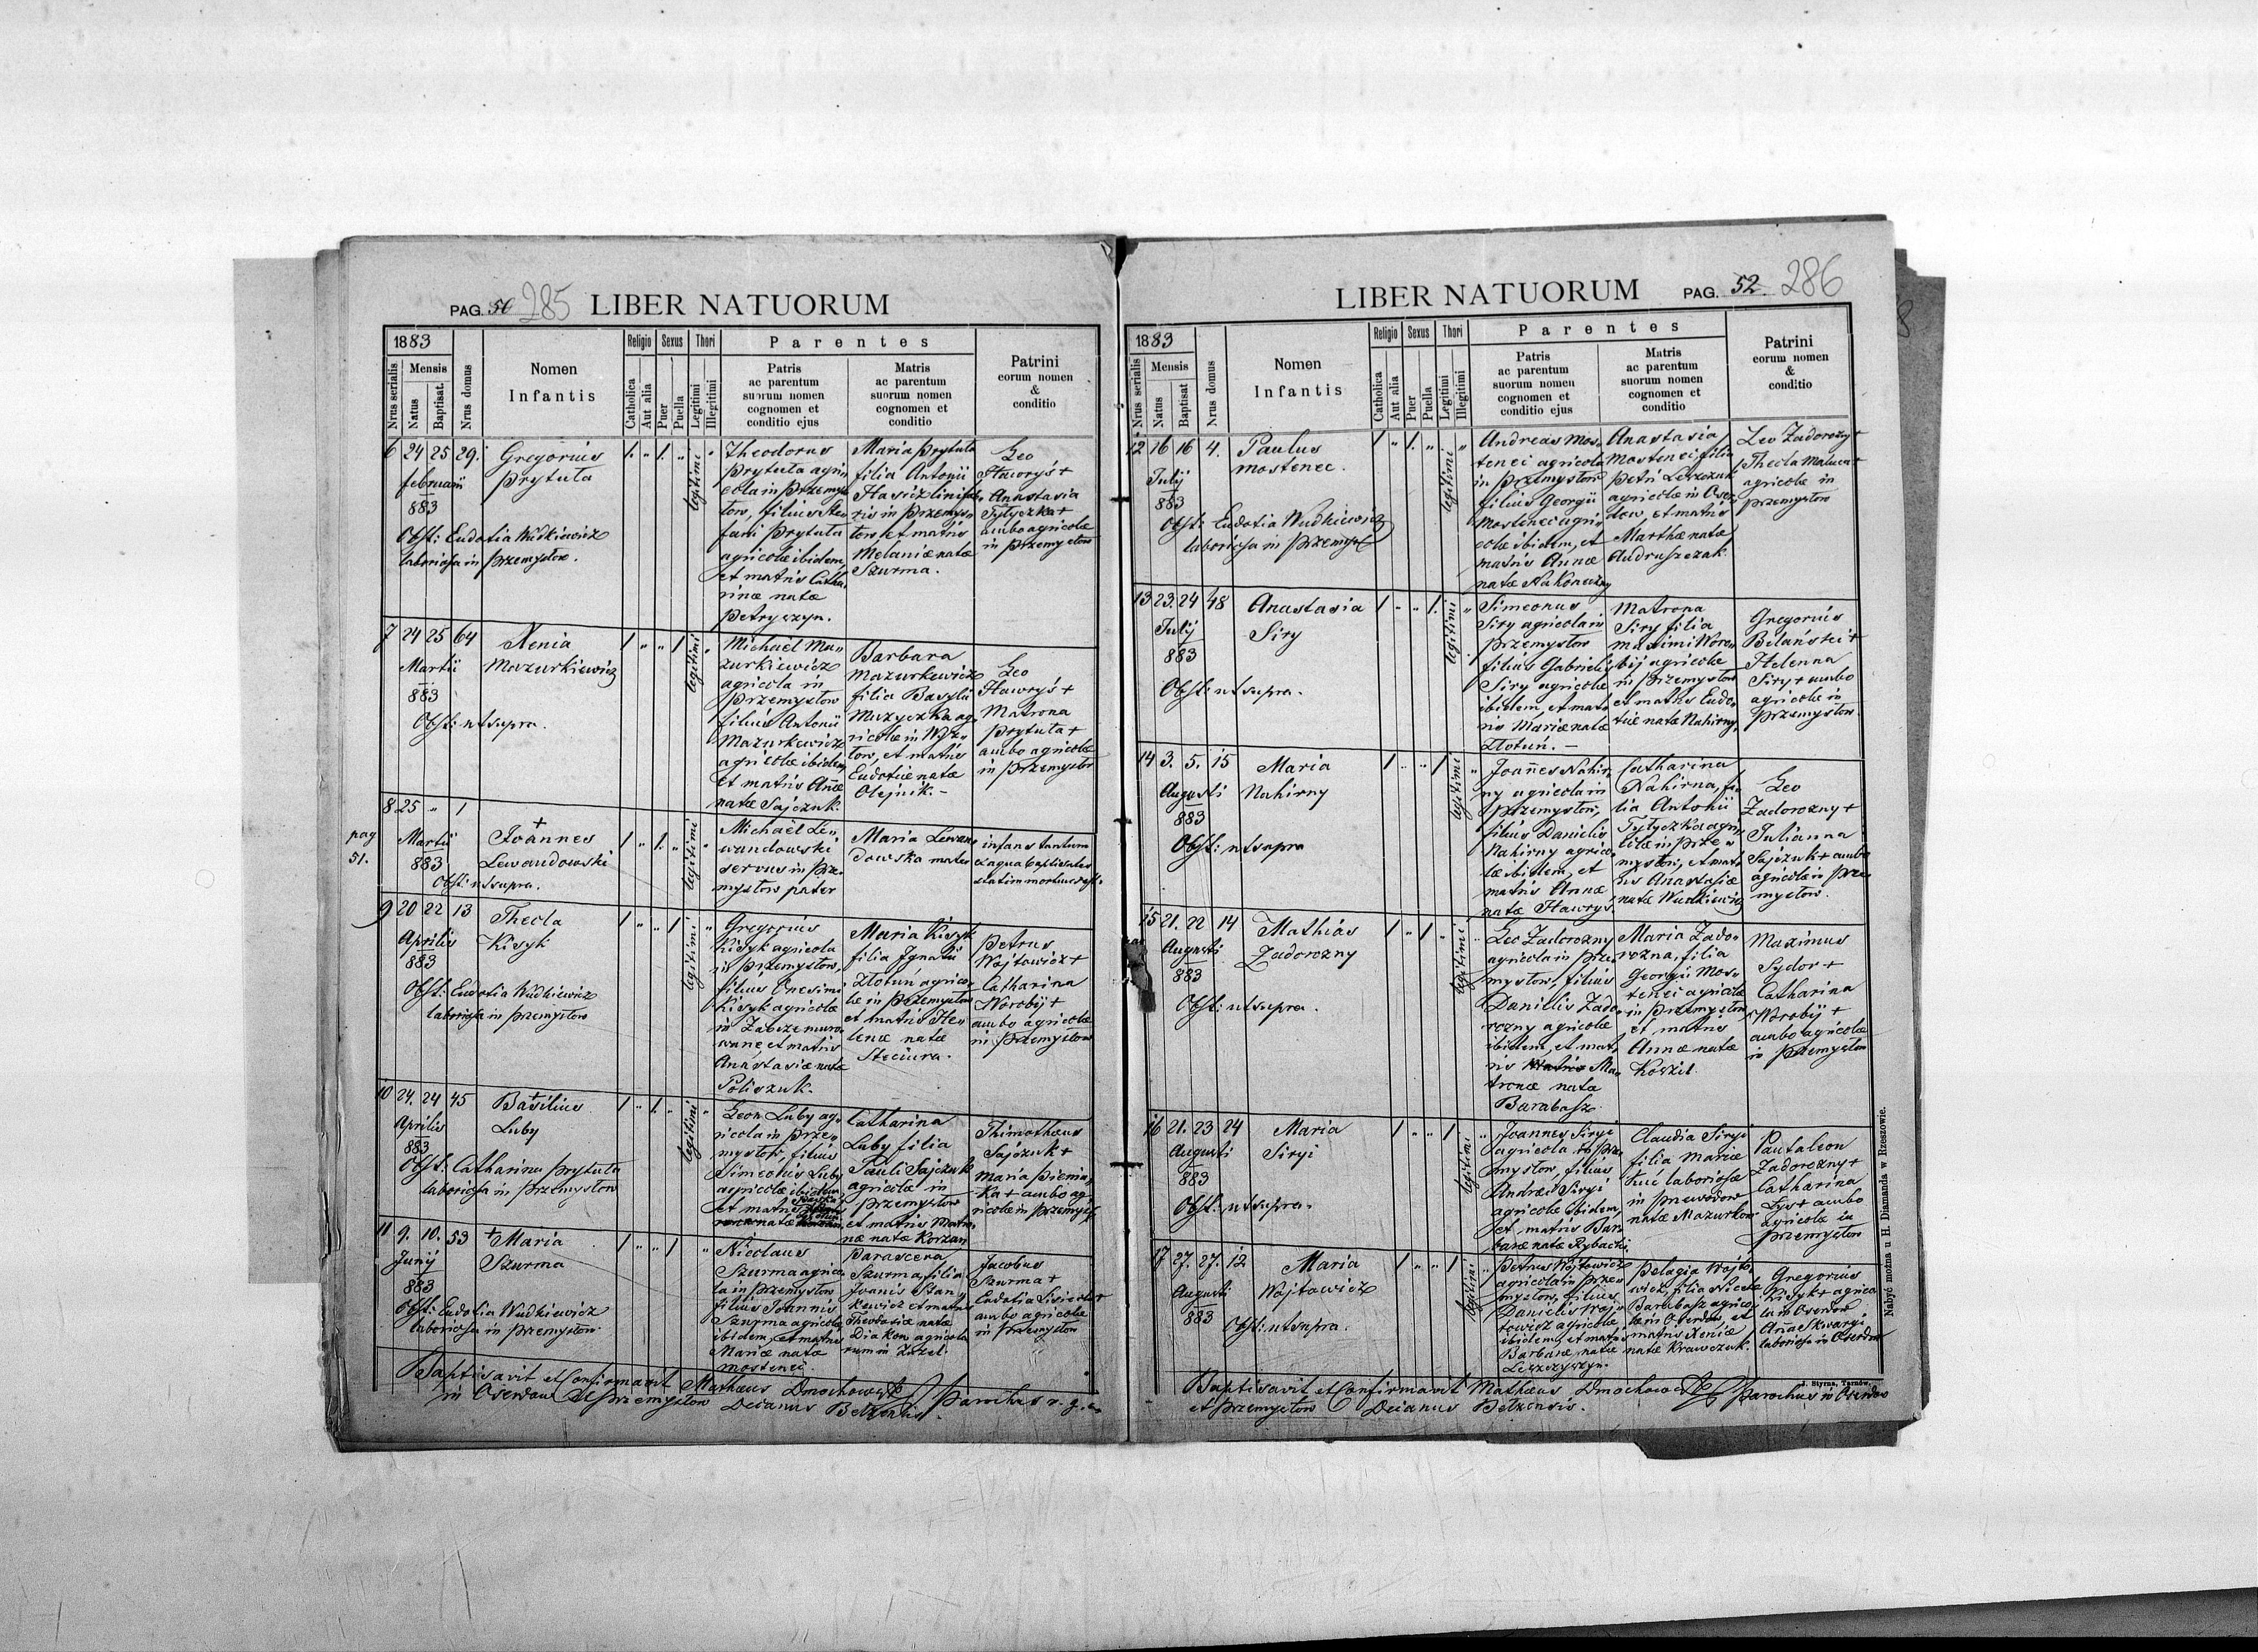 PAG. 50 285 LIBER NATUORUM
1883
Nrus serialis
Mensis
Natus
Baptisat.
Nrus domus
Nomen
Infantis
Religio
Catholica
Aut alia
Sexus
Puer
Puella
Thori
Legitimi
Illegitimi
Parentes
Patris
ac parentum
suorum nomen
cognomen et
conditio ejus
Matris
ac parentum
suorum nomen
cognomen et
conditio
Patrini
eorum nomen
&
conditio
6 24 25 29.
februarii
883
Gregorius
Prytuła
Obst: Eudoxia Wudkiewicz
laboriosa in Przemysłow.
1. " 1. "
legitimi
"
Theodorus
Prytuła agri„
cola in Przemys„
łow, filius Ste„
fani Prytuła
agricolæ ibidem,
et matris Catha„
rinæ natæ
Petryszyn.
Maria Prytuła
filia Antonii
in Przemys„
łow, et matris
Melaniæ natæ
Szurma.
Leo
Hawryś +
Anastasia
Tytyczka +
ambo agricolæ
in Przemysłow
7 24 25 64
Martii
883
Xenia
Mazurkiewicz
Obst: ut supra.
1 " " 1
legitimi
"
Michaël Ma„
zurkiewicz
agricola in
Przemysłow
filius Antonii
Mazurkewicz
agricolæ ibidem,
et matris Annæ
natæ Sajczuk.
Barbara
Mazurkewicz
filia Basylii
Muzyczka ag„
ricolæ in Wyż„
łow, et matris
Eudoxiæ natæ
Olejnik. -
Leo
Hawryś +
Matrona
Prytuła +
ambo agricolæ
in Przemysłow
pag
51.
8 25 " 1
Martii
883
+
Joannes
Lewandowski
Obst: ut supra.
1 " 1. "
legitimi
"
Michaël Le„
wandowski
servus in Prze„
mysłow pater
Maria Lewan„
dowska mater
infans tantum
ex aqua baptisatus
statim mortuus est.
9 20 22 13
Aprilis
883
Thecla
Kisyk
Obst: Eudoxia Wudkiewicz
laboriosa in Przemysłow
1 " " 1
legitimi
"
Gregorius
Kisyk agricola
in Przemysłow,
filius Onesimi
Kisyk agricolæ
in Zabcze muro„
wane, et matris
Anastasiæ natæ
Poliszuk.
Maria Kisyk
filia Ignatii
Złotuń agrico„
læ in Przemysłow
et matris He„
lenæ natæ
Steciura.
Petrus
Wojtowicz +
Catharina
Worobij +
ambo agricolæ
in Przemysłow
10 24. 24 45
Aprilis
883
+
Basilius
Luby
Obst: Catharina Prytuła
laboriosa in Przemysłow
1 " 1. "
legitimi
"
Leon Luby ag„
ricola in Prze„
mysłow, filius
Simeonis Luby
agricolæ ibidem
et matris
natæ
Catharina
Luby filia
Pauli Sajczuk
agricolæ in
Przemysłow
et matris Matro„
næ natæ Korzan
Thimotheus
Sajczuk +
Maria
ambo ag„
ricolæ in Przemysł
11 9. 10. 53
Junij
883
+ Maria
Szurma
Obst: Eudoxia Wudkiewicz
laboriosa in Przemysłow
1 " " 1
"
Nicolaus
Szurma agrico„
la in Przemysłow
filius Joannis
Szurma agricolæ
ibidem, et matris
Mariæ natæ
Mosteneć.
Parascena
Szurma, filia
Joanis Stan„
kewicz et matris
Theodosiæ natæ
Diakon agricola
rum in Żużel.
Jacobus
Szurma +
Eudoxia
ambo agricolæ
in Przemysłow
Baptisavit et Confirmavit Mathæus Dmochowski Parochus r. g. c.
in Oserdow et Przemysłow Decanus Bełzensis.
LIBER NATUORUM PAG. 52. 286
1883
Nrus serialis
Mensis
Natus
Baptisat
Nrus domus
Nomen
Infantis
Religio
Catholica
Aut alia
Sexus
Puer
Puella
Thori
Legitimi
Illegitimi
Parentes
Patris
ac parentum
suorum nomen
cognomen et
conditio ejus
Matris
ac parentum
suorum nomen
cognomen et
conditio
Patrini
eorum nomen
&
conditio
12 16 16 4.
Julij
883
Paulus
Mostenec.
Obst: Eudoxia Wudkiewicz
laboriosa in Przemysł
1 " 1. "
legitimi
"
Andreas Mos„
tenci agricola
in Przemysłow
filius Georgii
Mostenec agri„
colæ ibidem, et
matris Annæ
natæ Nakoneczny
Anastasia
Mostenci filia
Petri Leszczuk
agricolæ in Oser„
dow, et matris
Marthæ natæ
Andruszczak.
Leo Zadorozny +
Thecla Maluca +
agricolæ in
Przemysłow
13 23. 24 48
Julij
883
Anastasia
Siry
Obst: ut supra.
1 " " 1.
legitimi
"
Simeonus
Siry agricola in
Przemysłow
filius Gabrielis
Siry agricolæ
ibidem, et mat„
ris Mariæ natæ
Złotuń. —
Matrona
Siry filia
Maximi Woro„
bij agricolæ
in Przemysłow
et matris Eudo„
xiæ natæ Nahirny
Gregorius
Belański +
Helenna
Siry + ambo
agricolæ in
Przemysłow.
14 3. 5. 15
Augusti
883
Maria
Nahirny
Obst: ut supra
1 " " 1
legitimi
"
Joannes Nahir„
ny agricola in
Przemysłow,
filius Danielis
Nahirny agrico„
læ ibidem, et
matris Annæ
natæ Hawryś.
Catharina
Nahirna, fi„
lia Antonii
Tytyczka agri„
colæ in Prze„
mysłow, et mat„
ris Anastasiæ
natæ Wudkiewicz
Leo
Zadorozny +
Julianna
Sajczuk + ambo
agricolæ in Prze„
mysłow.
15 21. 22 14
Augusti
883
Mathias
Zadorozny
Obst: ut supra.
1 " 1 "
legitimi
"
Leo Zadorozny
agricola in Prze„
mysłow, filius
Danielis Zado„
rozny agricolæ
ibidem, et mat„
ris Matris Ma„
tronæ nata
Barabasz
Maria Zado„
rozna, filia
Georgii Mos„
tenci agricolæ
in Przemysłow
et matris
Annæ natæ
Koszil
Maximus
Sydor +
Catharina
Worobij +
ambo agricolæ
in Przemysłow
16 21. 23 24
Augusti
883
Maria
Siryi
Obst: ut supra.
1 " " 1
legitimi
"
Joannes Siryi
agricola in Prze„
mysłow, filius
Andreæ Siryi
agricolæ ibidem,
et matris Bar„
baræ natæ Rybachi.
Claudia Siryi
filia Mariæ
laboriosæ
in Przewodow
natæ Mazurkow
Pantaleon
Zadorozny +
Catharina
Lys + ambo
agricolæ in
Przemysłow
17 27. 27. 12
Augusti
883
Maria
Wojtowicz
Obst: ut supra.
1 " " 1
legitimi
"
Petrus Wojtowicz
agricola in Prze„
mysłow, filius
Danielis Woj„
towicz agricolæ
ibidem, et matris
Barbaræ natæ
Leszczyszyn.
Pelagia Wojto„
wicz, filia Nicolai
Barabasz agrico„
læ in Oserdow, et
matris Xeniæ
natæ Krawczuk.
Gregorius
Kisyk + agrico
la in Oserdow
Anna Skwargi
laboriosa in Oserdow
Baptisavit et Confirmavit Mathæus Dmochowski Parochus in Oserdow
et Przemysłow Decanus Bełzensis.
J. Styrna, Tarnów.
Nabyć można u H. Diamanda w Rzeszowie.